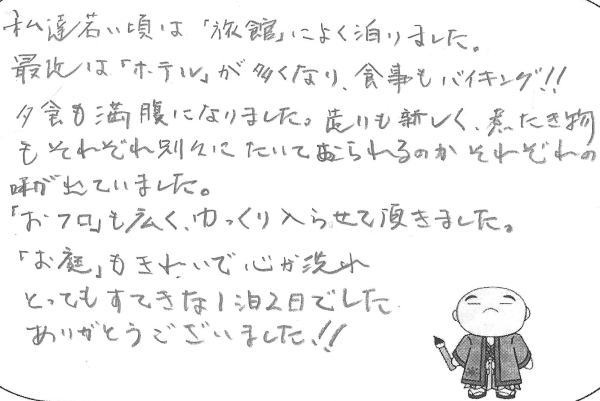 私達若い頃は「旅館」によく泊りました。
最近は「ホテル」が多くなり、食事もバイキング!!
夕食も満腹になりました。造りも新しく、煮たき物
もそれぞれ別々にたいておられるのかそれぞれの
味が出ていました。
「おフロ」も広く、ゆっくり入らせて頂きました。
「お庭」もきれいで心が洗れ
とってもすてきな1泊2日でした
ありがとうございました!!